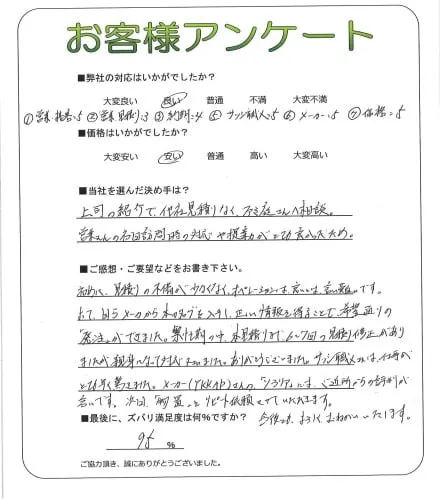 お客様アンケート
■弊社の対応はいかがでしたか?
大変良い 良い 普通 不満 大変不満
②営業見積り:3 ⑤サッシ職人:5 ⑥メーカー:5 ⑦価格:5
■価格はいかがでしたか?
大変安い 安い 普通 高い 大変高い
■当社を選んだ決め手は?
上司の紹介で、他社見積りなく、 相談。
営業さんの 訪問時の対応や提案力がとても良かったため。
■ご感想・ご要望などをお書き下さい。
見積りの不備が少なくなく、オペレーションは良いとは言い難いです。
メーカーからカタログを入手し、正しい情報を得ることで希望通りの
「発注」ができました。 の中、本見積りまで、6~7回の見積り修正があり
ましたが親身になって対応 ました。ありがとうございました。サッシ職人さんは、仕事が
とても早く驚きました。メーカー(YKKAP)さんの は、ご近所からの評判が
良いです。次回、 もリピート依頼させていただきます。
■最後に、ズバリ満足度は何%ですか? 今後とも、よろしくおねがいいたします。
95 %
ご協力頂き、誠にありがとうございました。